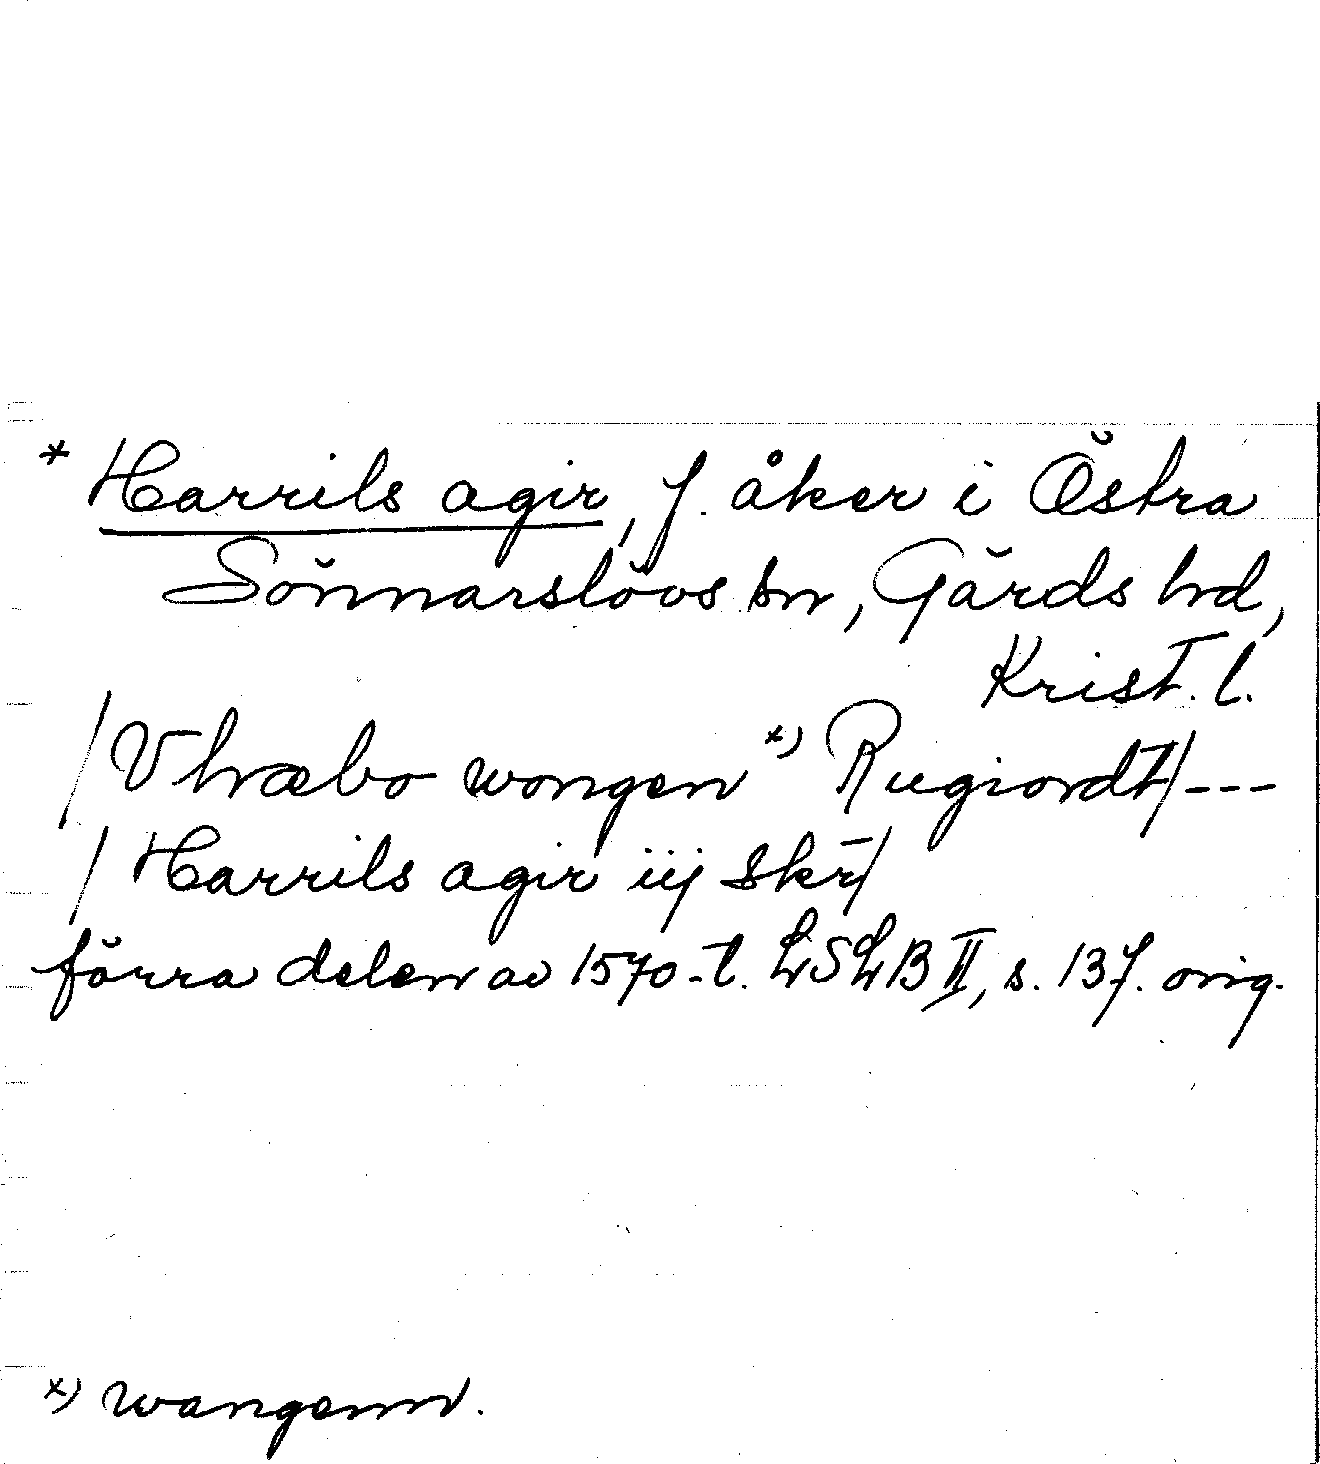 * Harrils agir, f. åker i Östra
Sönnarslövs sn, Gärds hd,
Krist. l.
/Vhræbo wongen x) Rugiordt/---
/ Harrils agir iij skr̄/
förra delen av 1570-t. LSLB II, s. 137. orig.
x) wangenn.